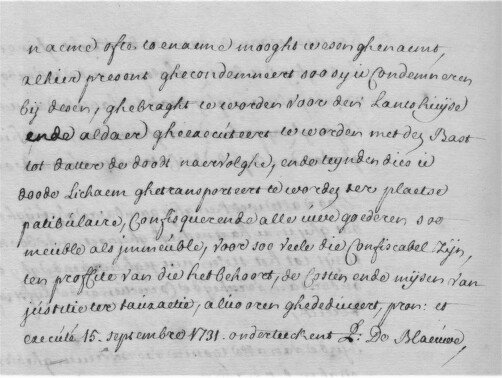 naeme ofte toenaeme mooght wesen ghenaemt,
alhier present ghecondemneert soo sy u Condemneren
bij desen, ghebraght te worden voor den Lantshuyse
ende aldaer gheexecuteert te worden met den Bast
tot datter de doodt naervolghe, ende teynden dies u
doode Lichaem ghetransporteert te worden ter plaetse
patibulaire, Confisquerende alle uwe goederen soo
meuble als immeuble, voor soo veele die Confiscabel Zijn,
ten proffite van die het behoort, de Costen ende mijsen van
justitie ter tauxactie, alvooren ghededuceert, pron: et
executé 15. septembre 1731. onderteeckent De Blaeuwe,